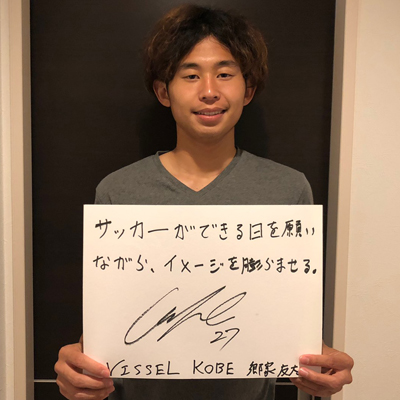 サッカーができる日を願い
ながら、イメージを膨らませる。
27
VISSEL KOBE 郷家友太